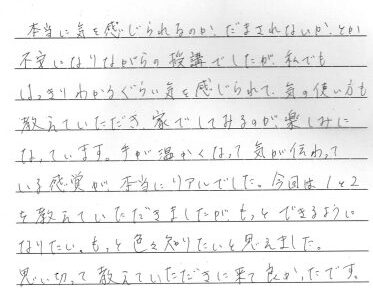 本当に気を感じられるのか、だまされないか、とか
不安になりながらの授講でしたが、私でも
はっきりわかるぐらい気を感じられて、気の使い方も
教えていただき、家でしてみるのが楽しみに
なっています。手が温かくなって気が伝わって
いる感覚が本当にリアルでした。今回は1と2
を教えていただきましたが、もっとできるように
なりたい、もっと色々知りたいと思えました。
思い切って教えていただきに来て良かったです。